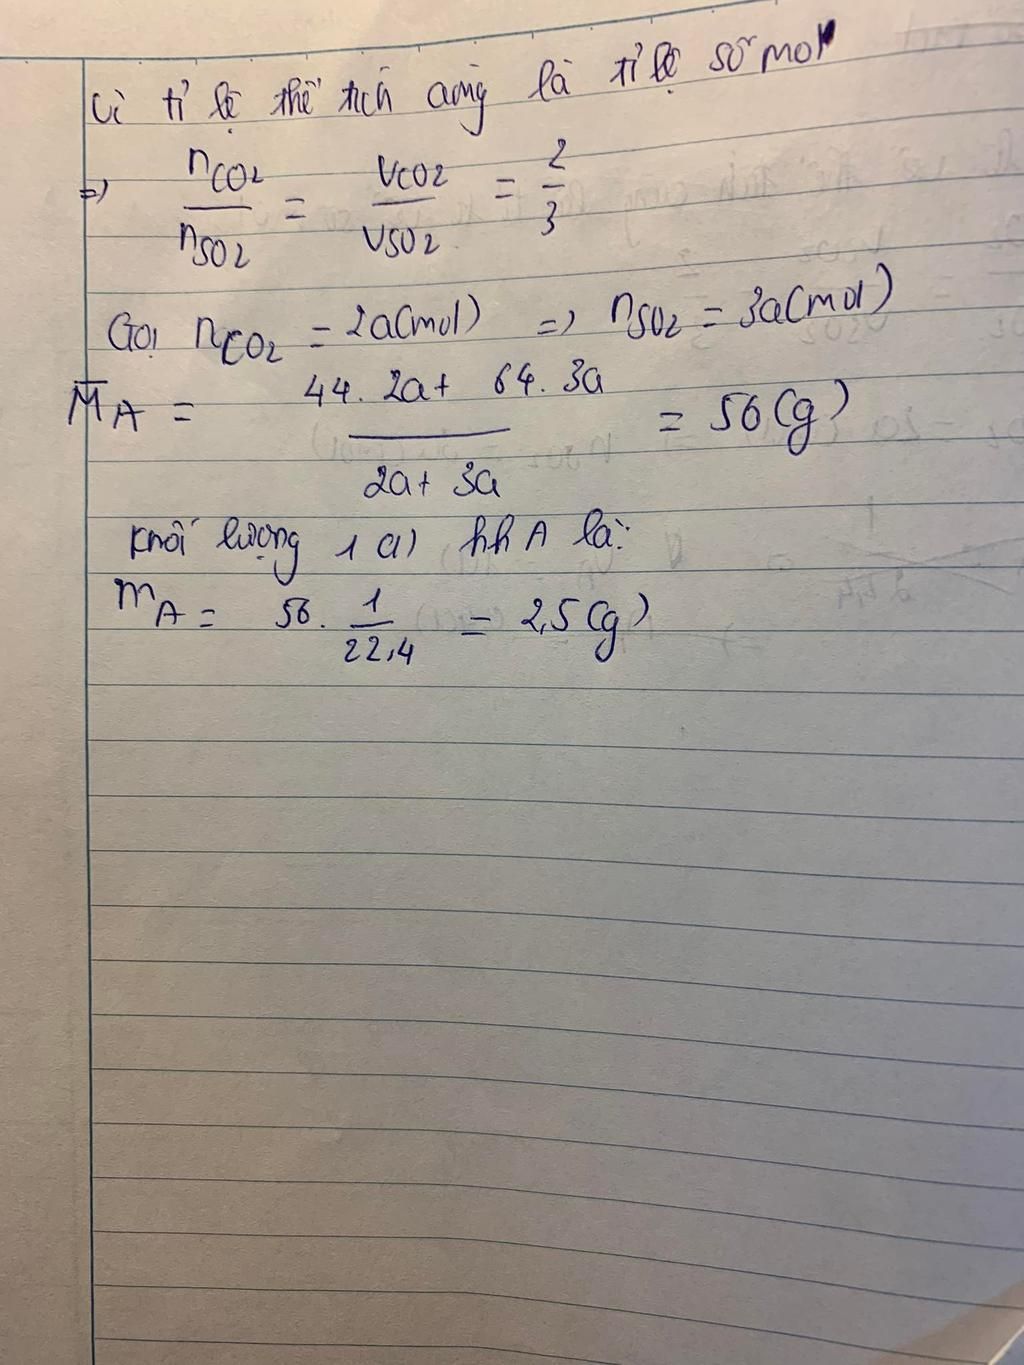 Vì tỉ lệ thể tích cũng là tỉ lệ số mol
=> nCO2/nSO2 = VCO2/VSO2 = 2/3
Gọi nCO2 = 2a(mol) => nSO2 = 3a(mol)
M̅A = (44.2a + 64.3a)/(2a + 3a) = 56(g)
Khối lượng 1(l) hh A là:
mA = 56. 1/22,4 = 2,5(g)